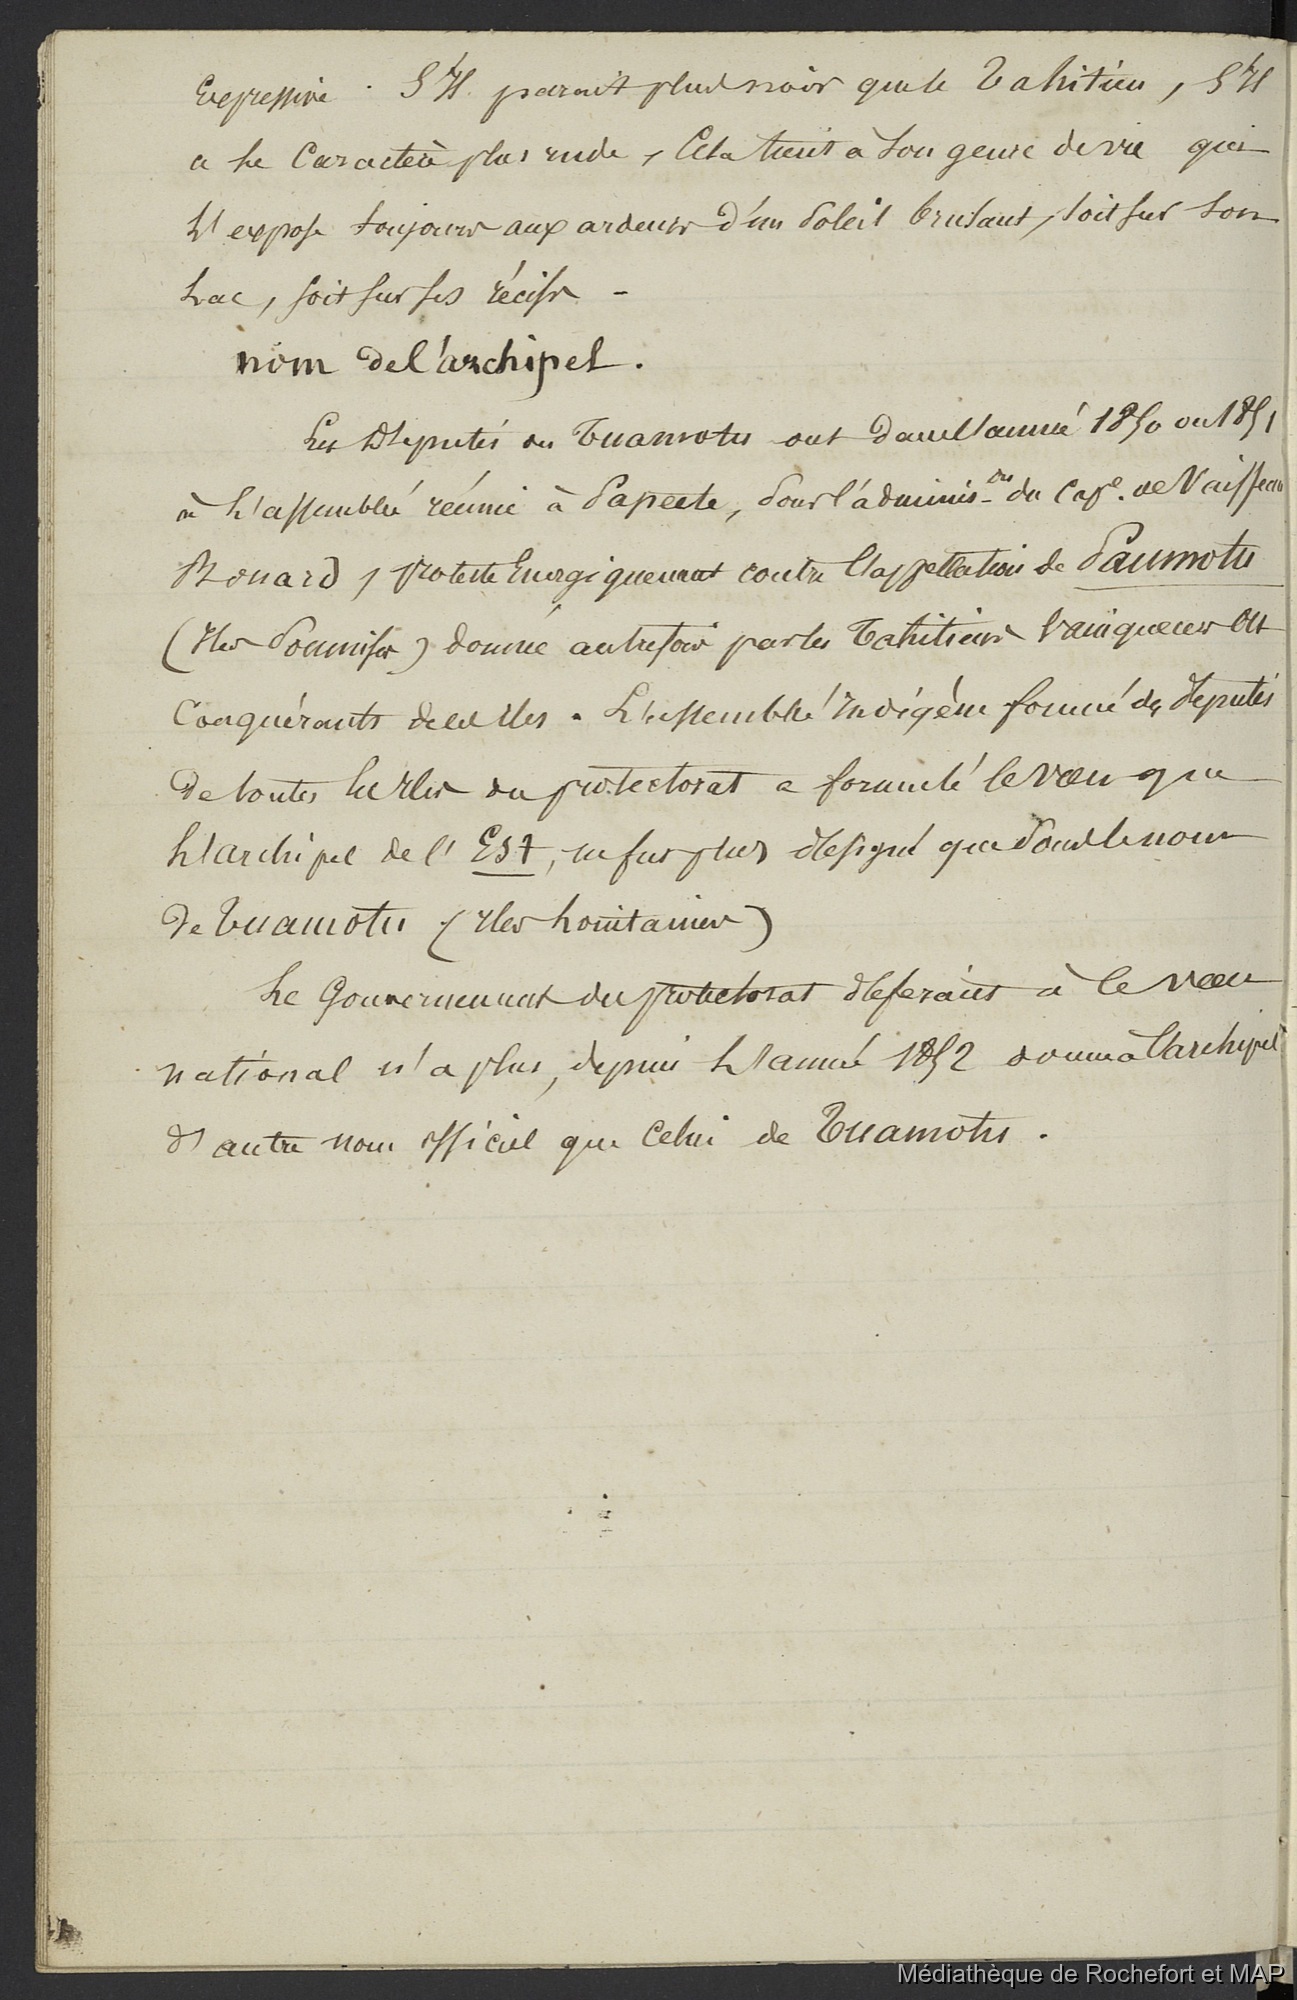 Expressive. S'Il parait plus noir que le Tahitien, S'Il
a le Caractère plus rude, Cela tient à Son genre de vie qui
L'expose toujours aux ardeurs d'un Soleil brulant, Soit sur Son
Lac, soit sur ses récifs -
nom de l'archipel.
Les Députés des Tuamotu ont dans L'année 1850 ou 1851
à L'assemblée réunie à Papeete, Sous l'adminis-on du Cape. de Vaisseau
Bonard, protesté Energiquement contre l'appellation de Paumotu
(Iles Soumises) donné autrefois par les Tahitiens Vainqueurs et
Conquérants de ces Iles. L'assemblée Indigène formée des députés
de toutes les Iles du protectorat a formulé le vœu que
L'archipel de l'Est, ne fut plus désigné que Sous le nom
de Tuamotu (Iles Lointaines)
Le Gouvernement du protectorat déférant à ce vœu
national n'a plus, depuis L'année 1852 donné à l'archipel
d'autre nom officiel que Celui de Tuamotu.
Médiathèque de Rochefort et MAP